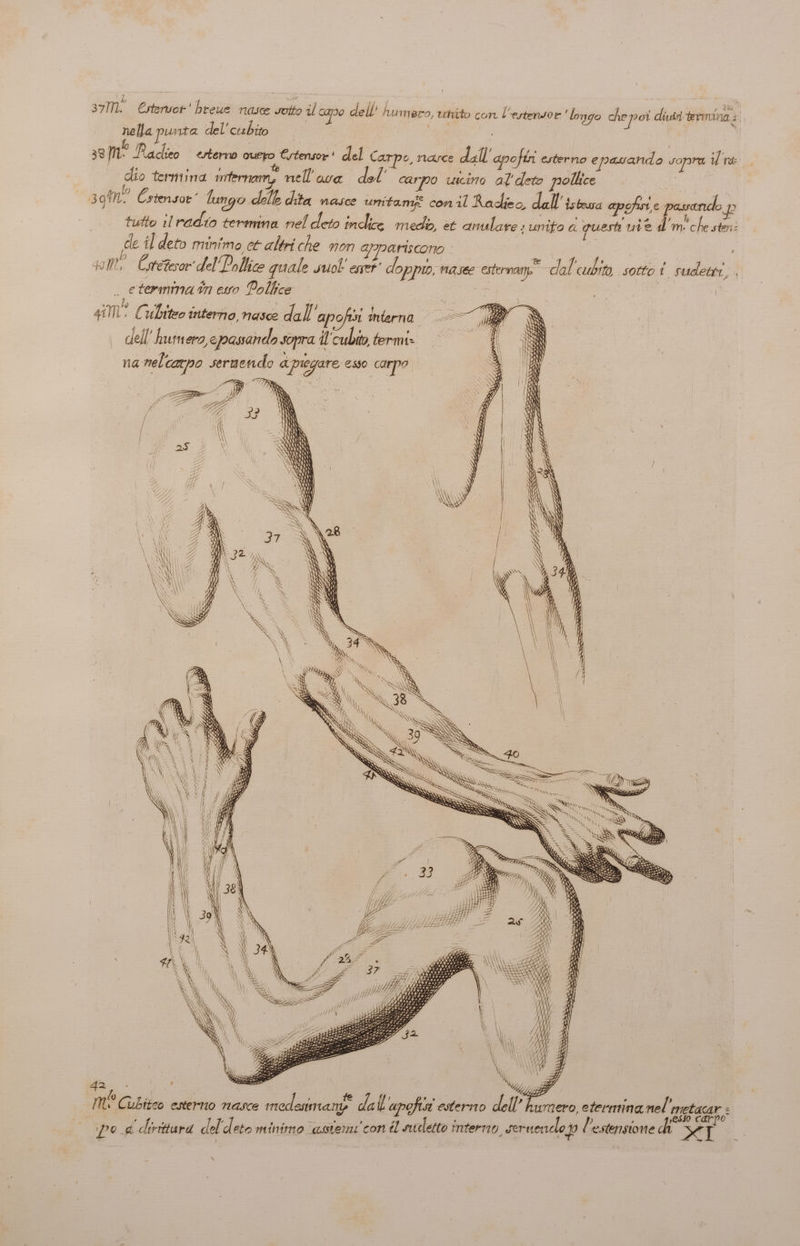 37 M.lo Estensor' breue nasce sotto il capo dell' humero, unito con l'estensor' longo che poi diuid termina:
nella punta del' cubito
38 M.lo Radieo esterno ouero Estensor' del Carpo, nasce dall' apofisi esterno e passando sopra il ra:
dio termina internam.te nell' ossa del' carpo uicino al' deto pollice
39 M.lo Estensor' lungo delle dita nasce unitam.te con il Radieo, dall' istessa apofisi, e passando p
tutto il radio termina nel deto indice, medio, et anulare; unito a questi ui è il m.lo che sten:
de il deto minimo et altri che non appariscono
40 M.lo Estēsor' del' Pollice quale suol' esser' doppio, nasce esternam.te dal' cubito, sotto i sudetti,
e termina in esso Pollice
41 M.lo Cubiteo interno, nasce dall' apofisi interna
dell' humero, e passando sopra il' cubito, termi=
na nel' carpo seruendo a piegare esso carpo
33
25
28
37 28
32
34
34
38
39
42 40
41
33
40
38
39 25
42 34
41 28
37
32
42
M.lo Cubiteo esterno nasce medesimam.te dall' apofisi esterno dell' humero, e termina nel' metacar:
po a dirittura del' deto minimo assiem' con il sudetto interno, seruendo p l'estensione di esso carpo
XI